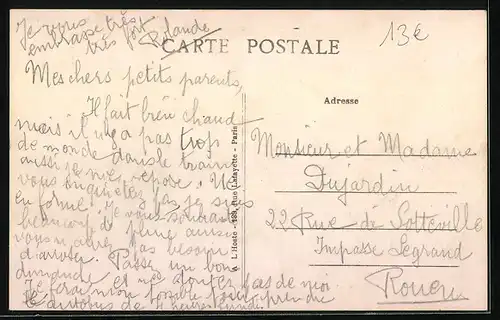 Je vous
embrasse très
très fort Rolande
CARTE POSTALE
13€
Mes chers petits parents,
Il fait bien chaud
mais il n'y a pas trop
de monde dans le train
aussi je me repose. Ne
vous inquiétez pas je suis
en forme. Je vous souhaite
beaucoup de pluie aussi
vous n'aurez pas besoin
d'arroser. Passez un bon
dimanche et ne doutez pas de moi.
Je ferai mon possible pour prendre
le autobus de 4 heures lundi
L. Hoste - Rue Lafayette - Paris
Adresse
Monsieur et Madame
Dujardin
22 Rue de Sotteville
Impasse Legrand
Rouen